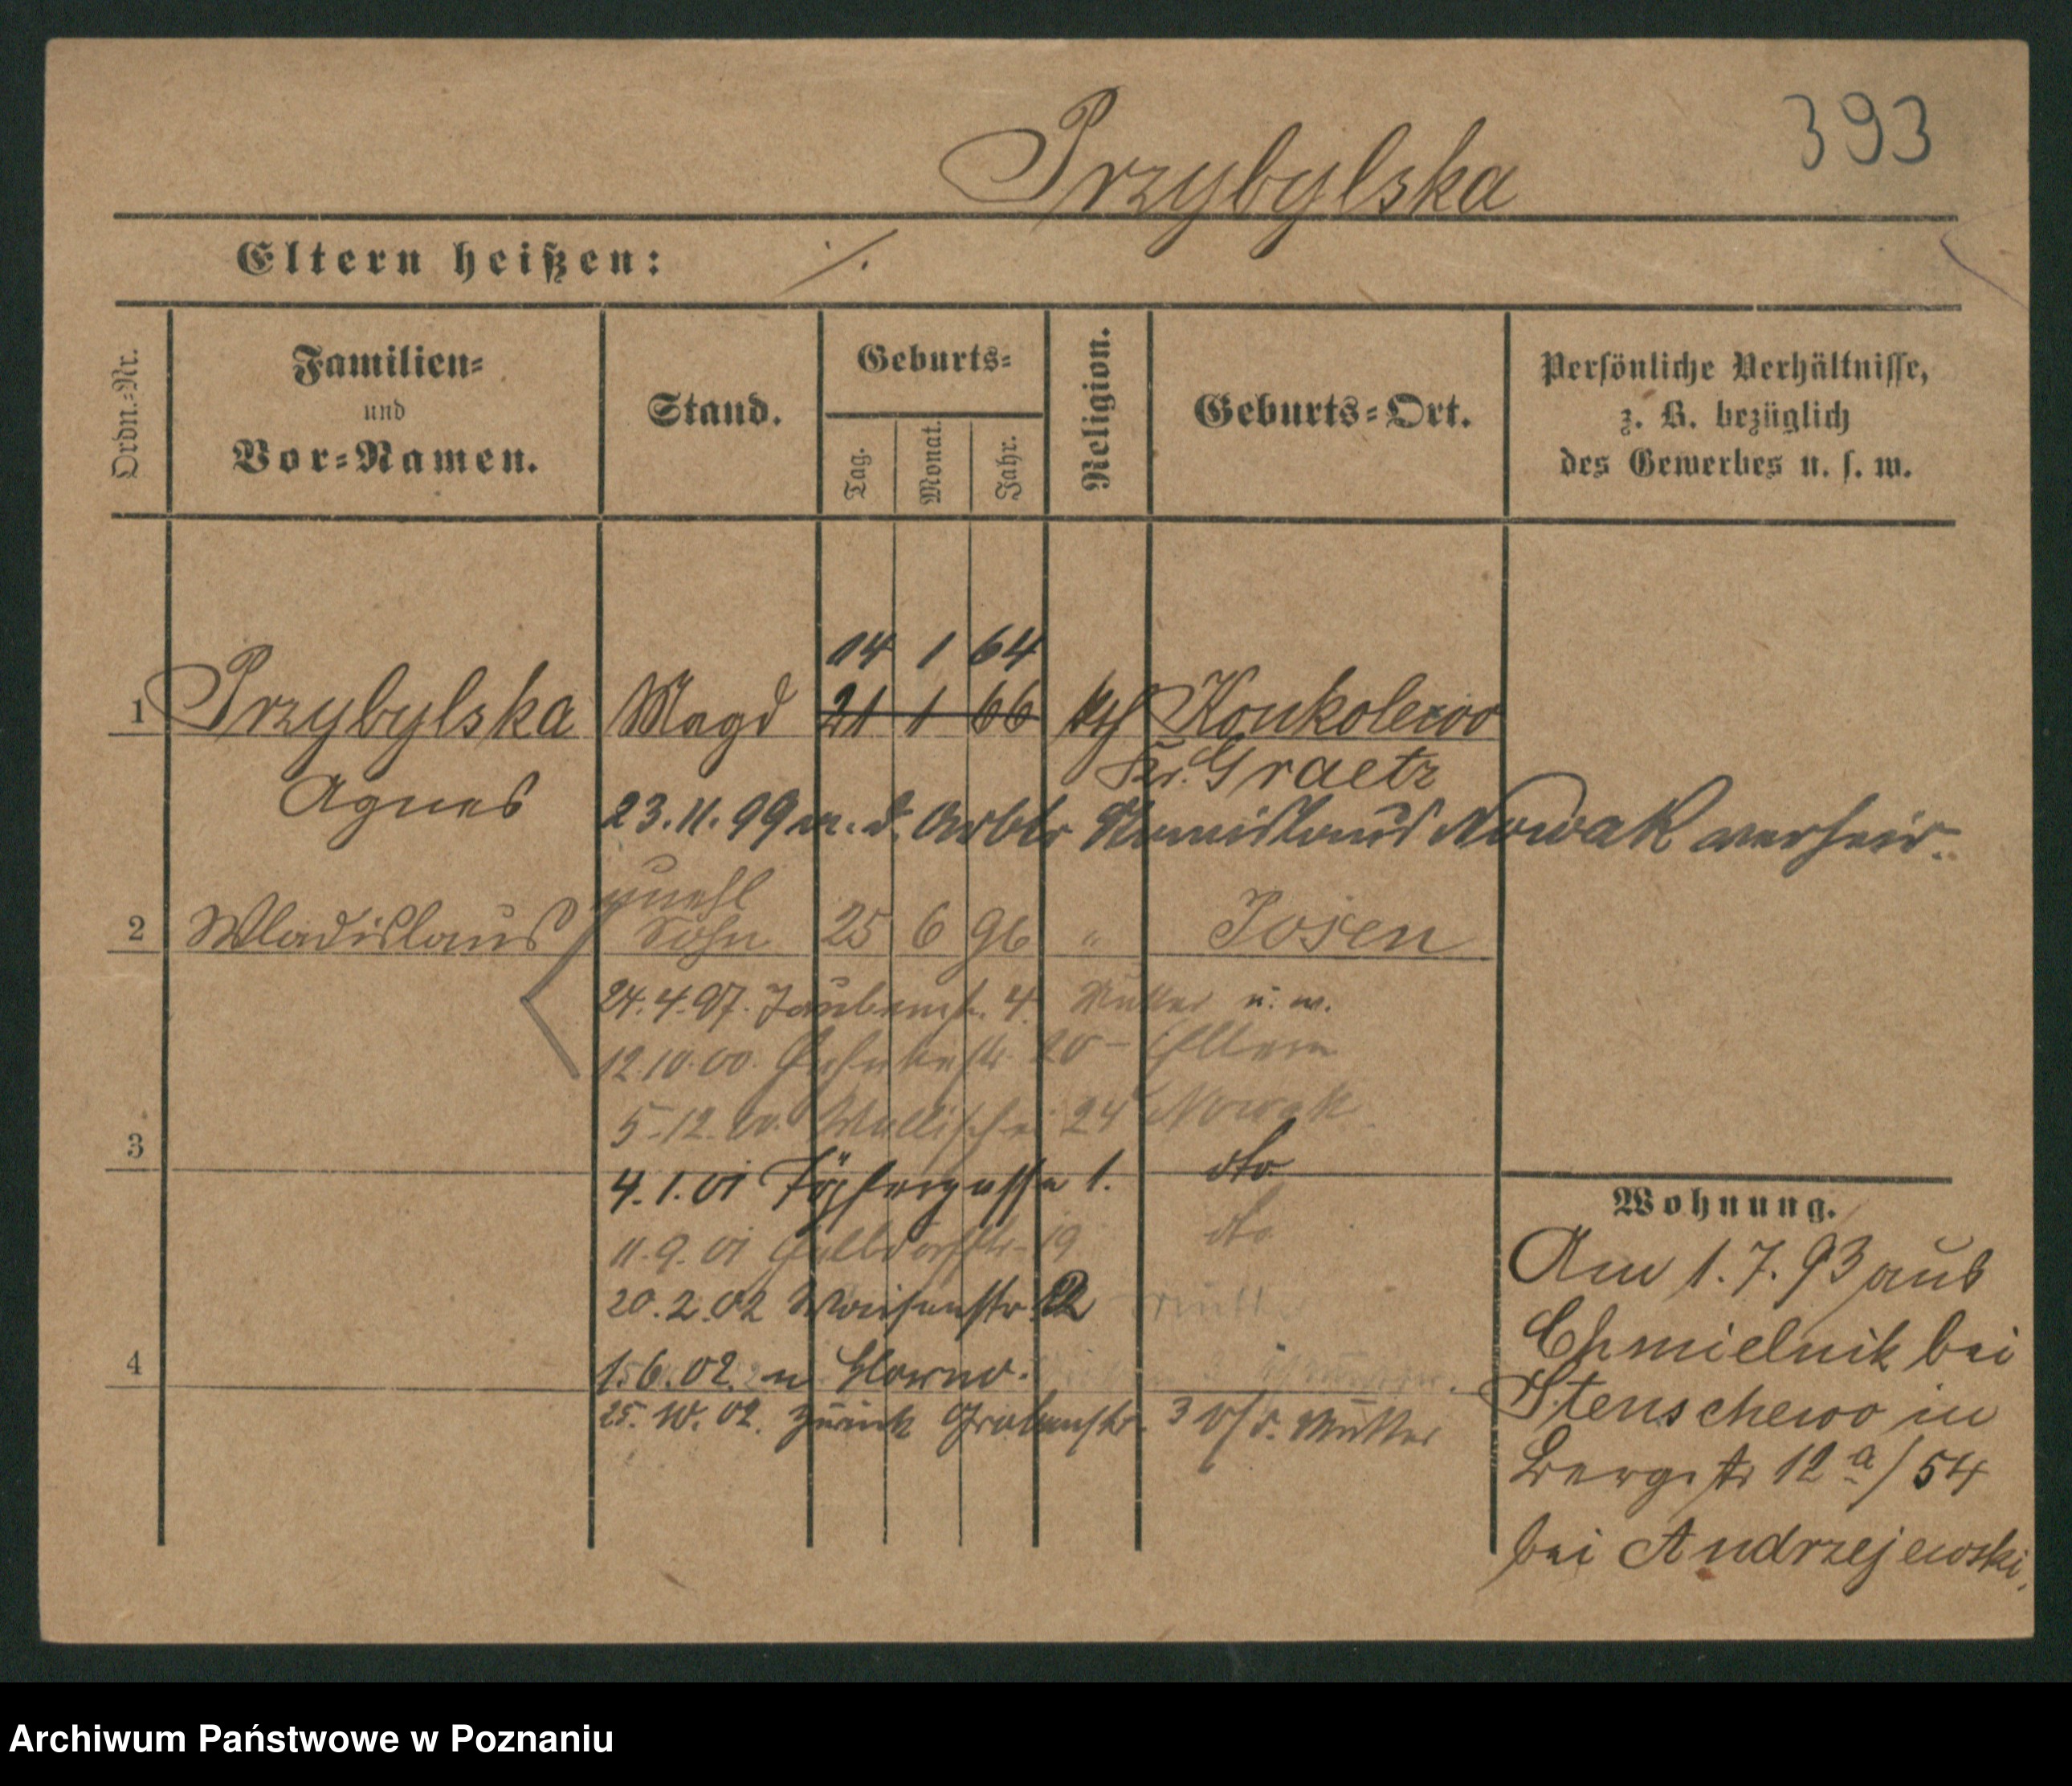 393
Przybylska
Eltern heißen: ·/.
Ordn.-Nr.
Familien-
und
Vor-Namen.
Stand.
Geburts-
Tag.
Monat.
Jahr.
Religion.
Geburts-Ort.
Persönliche Verhältnisse,
z. B. bezüglich
des Gewerbes u. s. w.
14 1 64
1 Przybylska Magd 21 1 66 kth Konkolewo
Kr. Graetz
Agnes
23.11.99 m. d. Arbtr Stanislaus Nowak verheir.
unehl
2 Wladislaus Sohn 25 6 96 " Posen
24.4.97. Taubenstr. 4. Mutter u. w.
12.10.00. 20 - Eltern
5.12.00. Wallischei 24 Nowak
3
4.1.01 Töpfergasse 1. dto
11.9.01 Halbdorfstr. 19 dto
20.2.02 Waisenstr 12 Mutter
4
1.6.02. n Glowno.
25.10.02. zurück Grabenstr. 3 b/d. Mutter
Wohnung.
Am 1.7.93 aus
Chmielnik bei
Stenschewo in
Bergstr 12a/54
bei Andrzejewski.
Archiwum Państwowe w Poznaniu